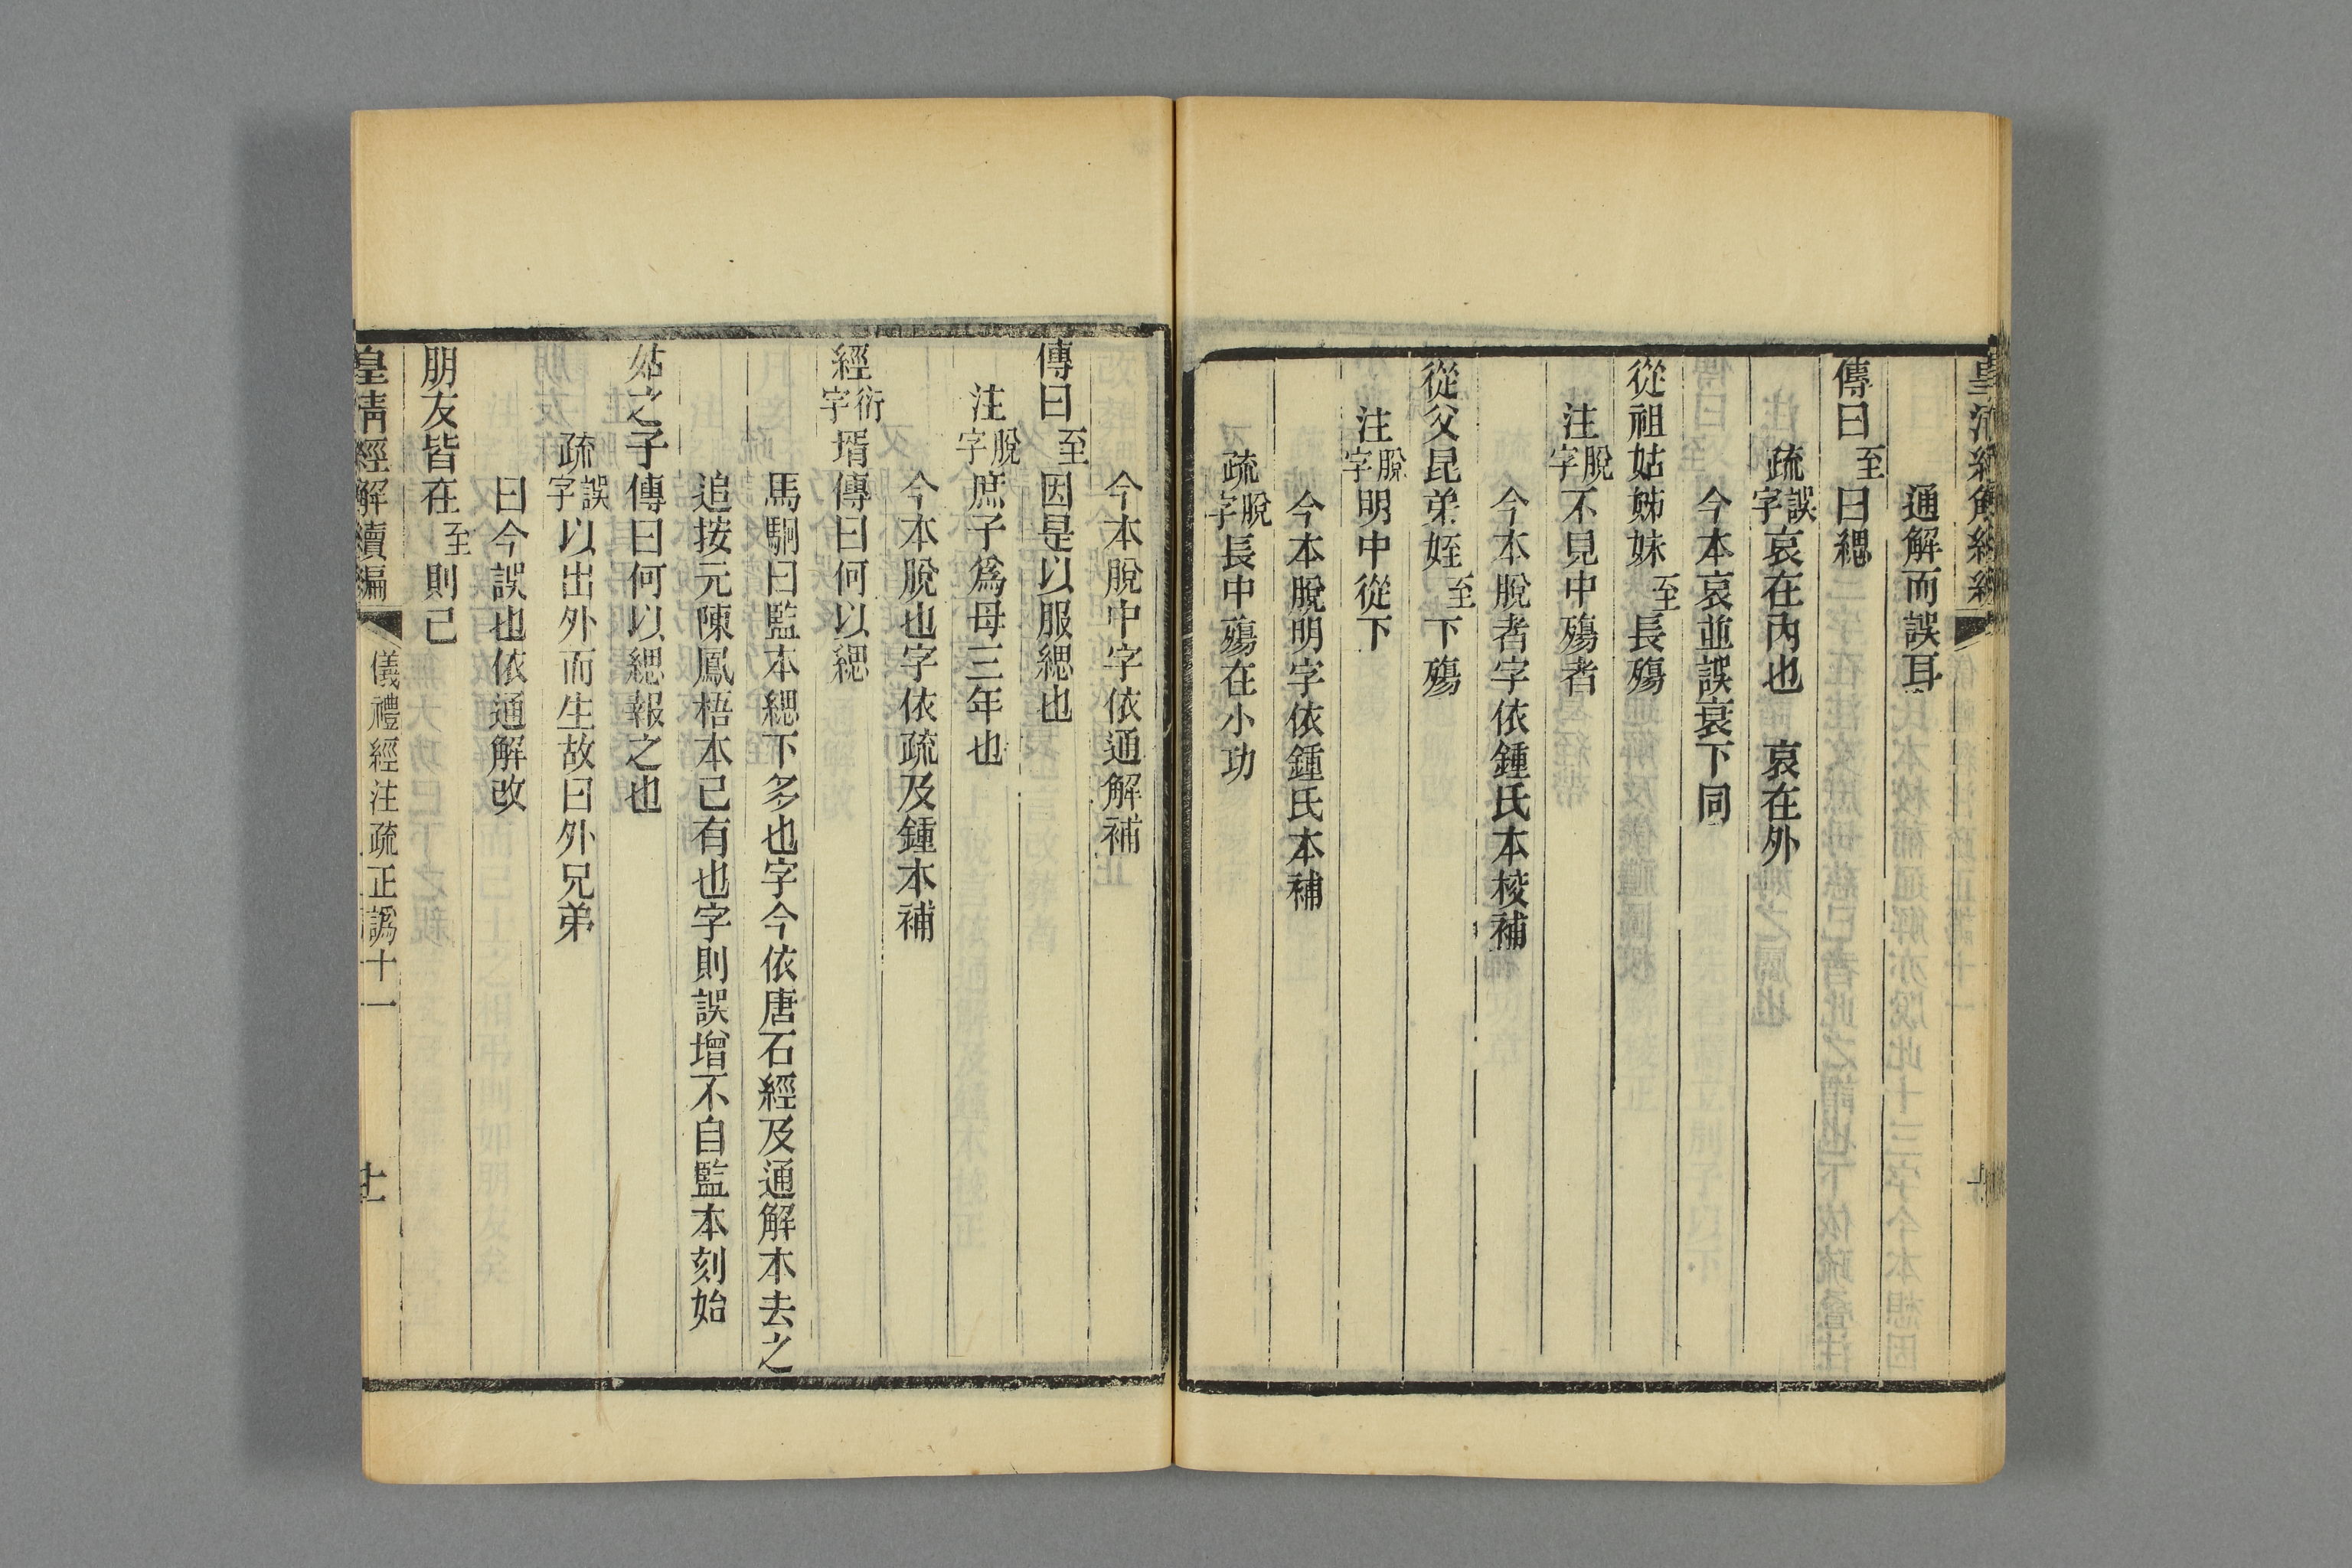 通解而誤耳
傳曰至曰緦
疏誤字哀在內也　哀在外
今本哀並誤衰下同
從祖姑姊妹至長殤
注脫字不見中殤者
今本脫者字依鍾氏本校補
從父昆弟姪至下殤
注脫字明中從下
今本脫明字依鍾氏本補
疏脫字長中殤在小功
今本脫中字依通解補
傳曰至因是以服緦也
注脫字庶子爲母三年也
今本脫也字依疏及鍾本補
經衍字壻傳曰何以緦
馬駉曰監本緦下多也字今依唐石經及通解本去之
追按元陳鳳梧本已有也字則誤增不自監本刻始
姑之子傳曰何以緦報之也
疏誤字以出外而生故曰外兄弟
曰今誤也依通解改
朋友皆在至則已
皇清經解續編　儀禮經注疏正譌十一　十一